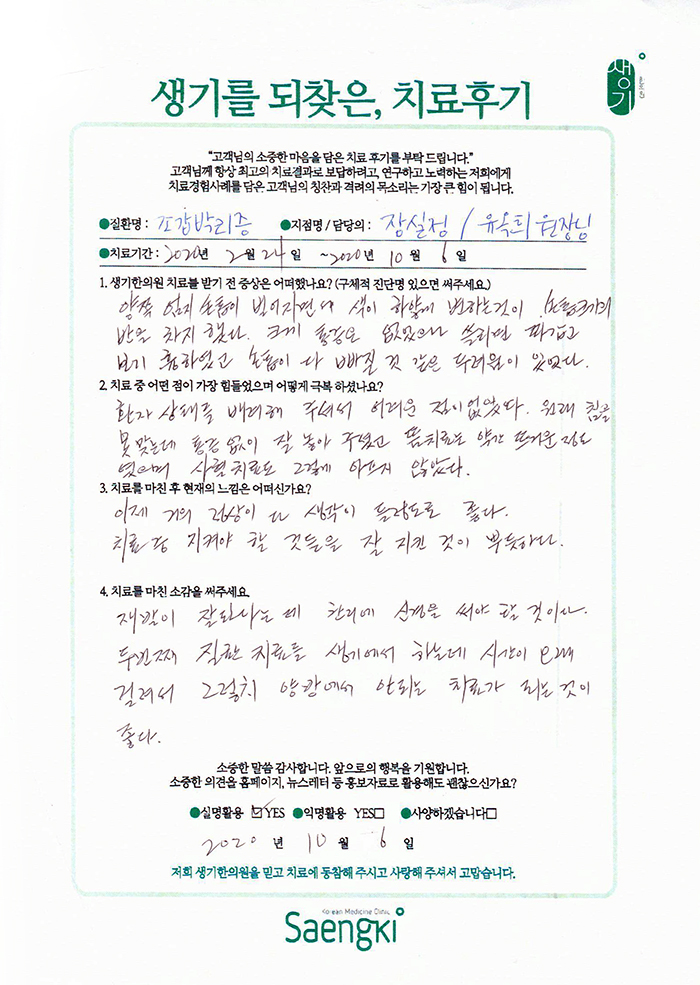 생기
한의원
생기를 되찾은, 치료후기
“고객님의 소중한 마음을 담은 치료 후기를 부탁 드립니다.”
고객님께 항상 최고의 치료결과로 보답하려고, 연구하고 노력하는 저희에게
치료경험사례를 담은 고객님의 칭찬과 격려의 목소리는 가장 큰 힘이 됩니다.
●질환명 : 조갑박리증 ●지점명 / 담당의 : 잠실점 / 유옥희 원장님
●치료기간 : 2020년 2월 24일 ~2020년 10월 6일
1. 생기한의원 치료를 받기 전 증상은 어떠했나요? (구체적 진단명 있으면 써주세요.)
양쪽 엄지 손톱이 벌어지면서 색이 하얗게 변하는것이 손톱크기의
반을 차지 했다. 크게 통증은 없었으나 쓸리면 따갑고
보기 흉하였고 손톱이 다 빠질 것 같은 두려움이 있었다.
2. 치료 중 어떤 점이 가장 힘들었으며 어떻게 극복 하셨나요?
환자 상태를 배려해 주셔서 어려운 점이 없었다. 원래 침을
못 맞는데 통증 없이 잘 놓아 주셨고 뜸치료는 약간 뜨거운 정도
였으며 사혈 치료도 그렇게 아프지 않았다.
3. 치료를 마친 후 현재의 느낌은 어떠신가요?
이제 거의 정상이 된 생각이 들정도로 좋다.
치료 중 지켜야 할 것들을 잘 지킨 것이 뿌듯하다.
4. 치료를 마친 소감을 써주세요.
재발이 잘된다는데 관리에 신경을 써야 할 것이다.
두번째 질환 치료를 생기에서 하는데 시간이 오래
걸려서 그렇지 양방에서 안되는 치료가 되는 것이
좋다.
소중한 말씀 감사합니다. 앞으로의 행복을 기원합니다.
소중한 의견을 홈페이지, 뉴스레터 등 홍보자료로 활용해도 괜찮으신가요?
●실명활용 ☑YES ●익명활용 YES□ ●사양하겠습니다□
2020 년 10 월 6 일
저희 생기한의원을 믿고 치료에 동참해 주시고 사랑해 주셔서 고맙습니다.
Korean Medicine Clinic
Saengki